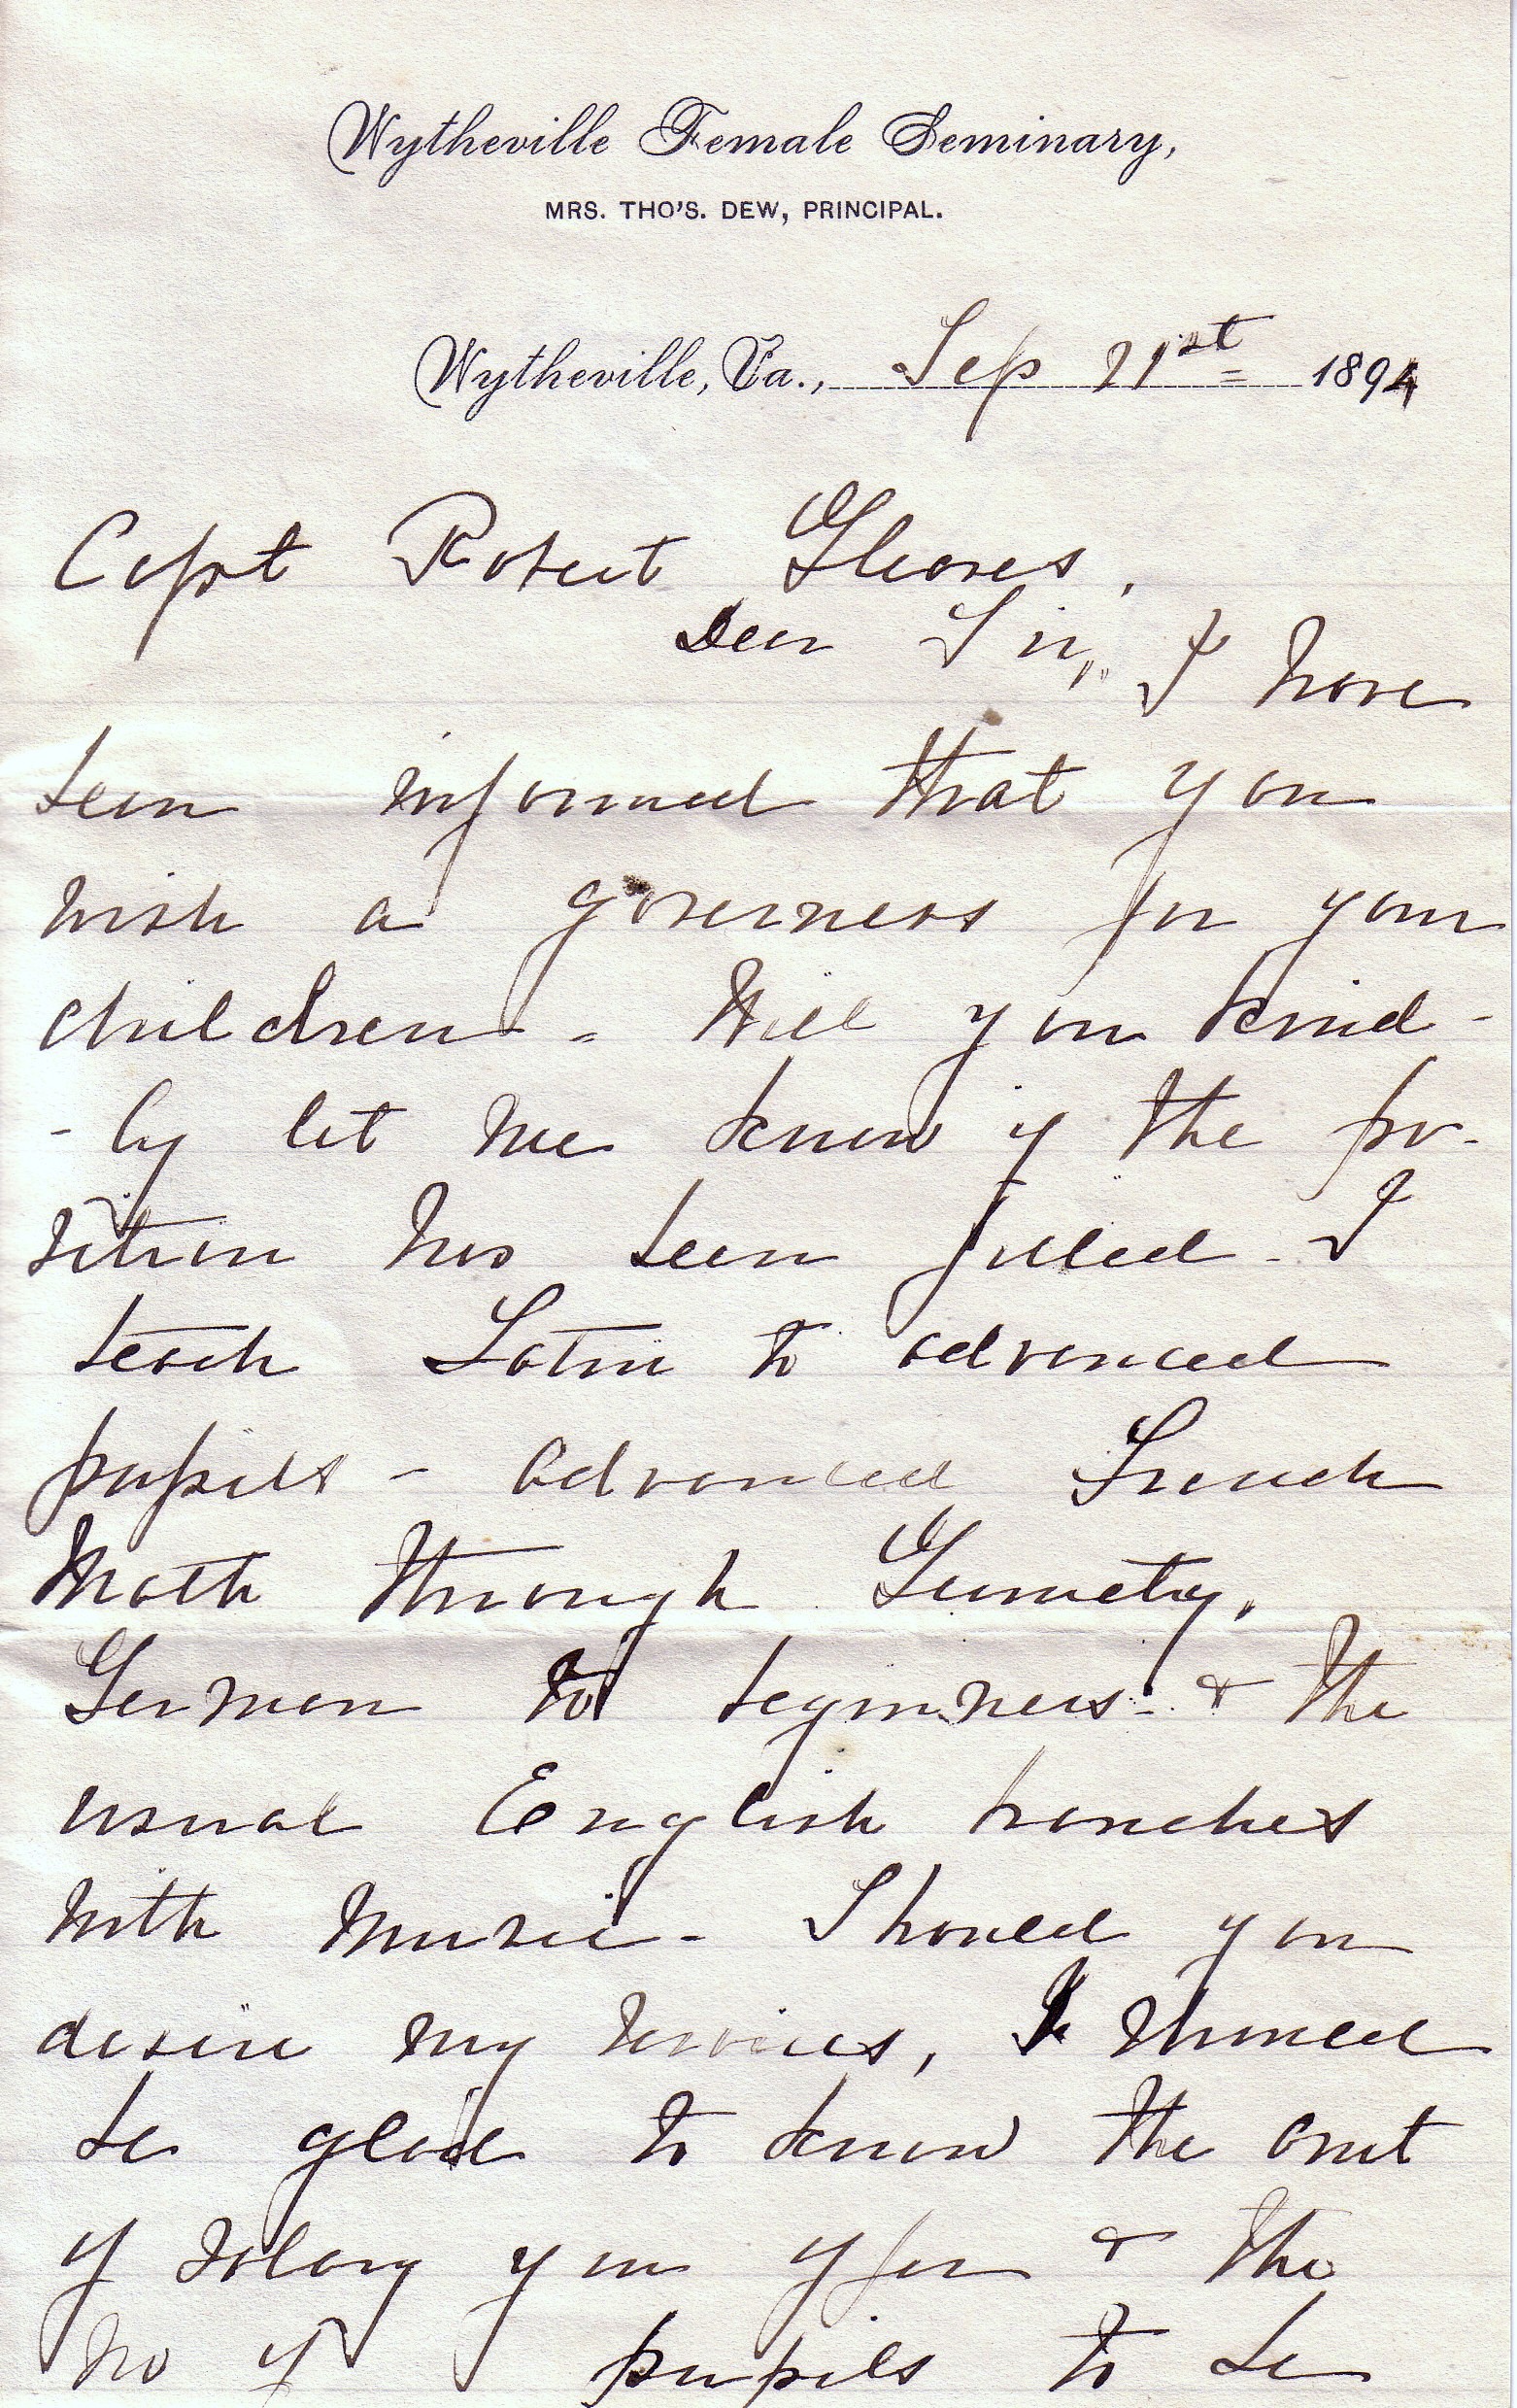 Wytheville Female Seminary,
MRS. THO'S. DEW, PRINCIPAL.
Wytheville, Va., Sep 21st 1894
Capt Robert Gleaves,
Dear Sir, I have
been informed that you
wish a governess for your
children - Will you kind-
-ly let me know if the po-
sition has been filled - I
teach Latin to advanced
pupils - advanced French
Math through Geometry,
German to beginners - & the
usual English branches
with music - Should you
desire my services, I should
be glad to know the amt
of salary you offer & the
no of pupils to be